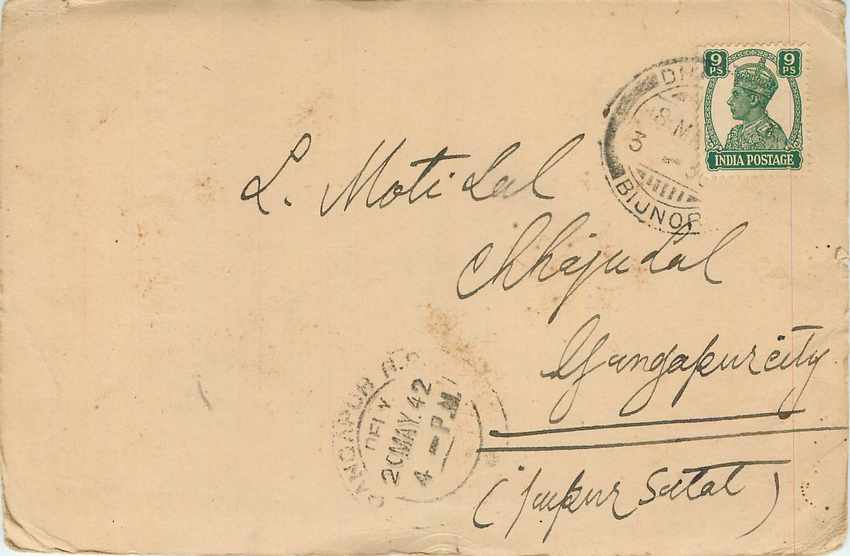 9 PS 9 PS
INDIA POSTAGE
8 MA
3
BIJNOR
L. Moti Lal
Chhajulal
Gangapurcity
(Jaipur Satat)
GANGAPUR
DELY
20 MAY. 42
4 - P.M.